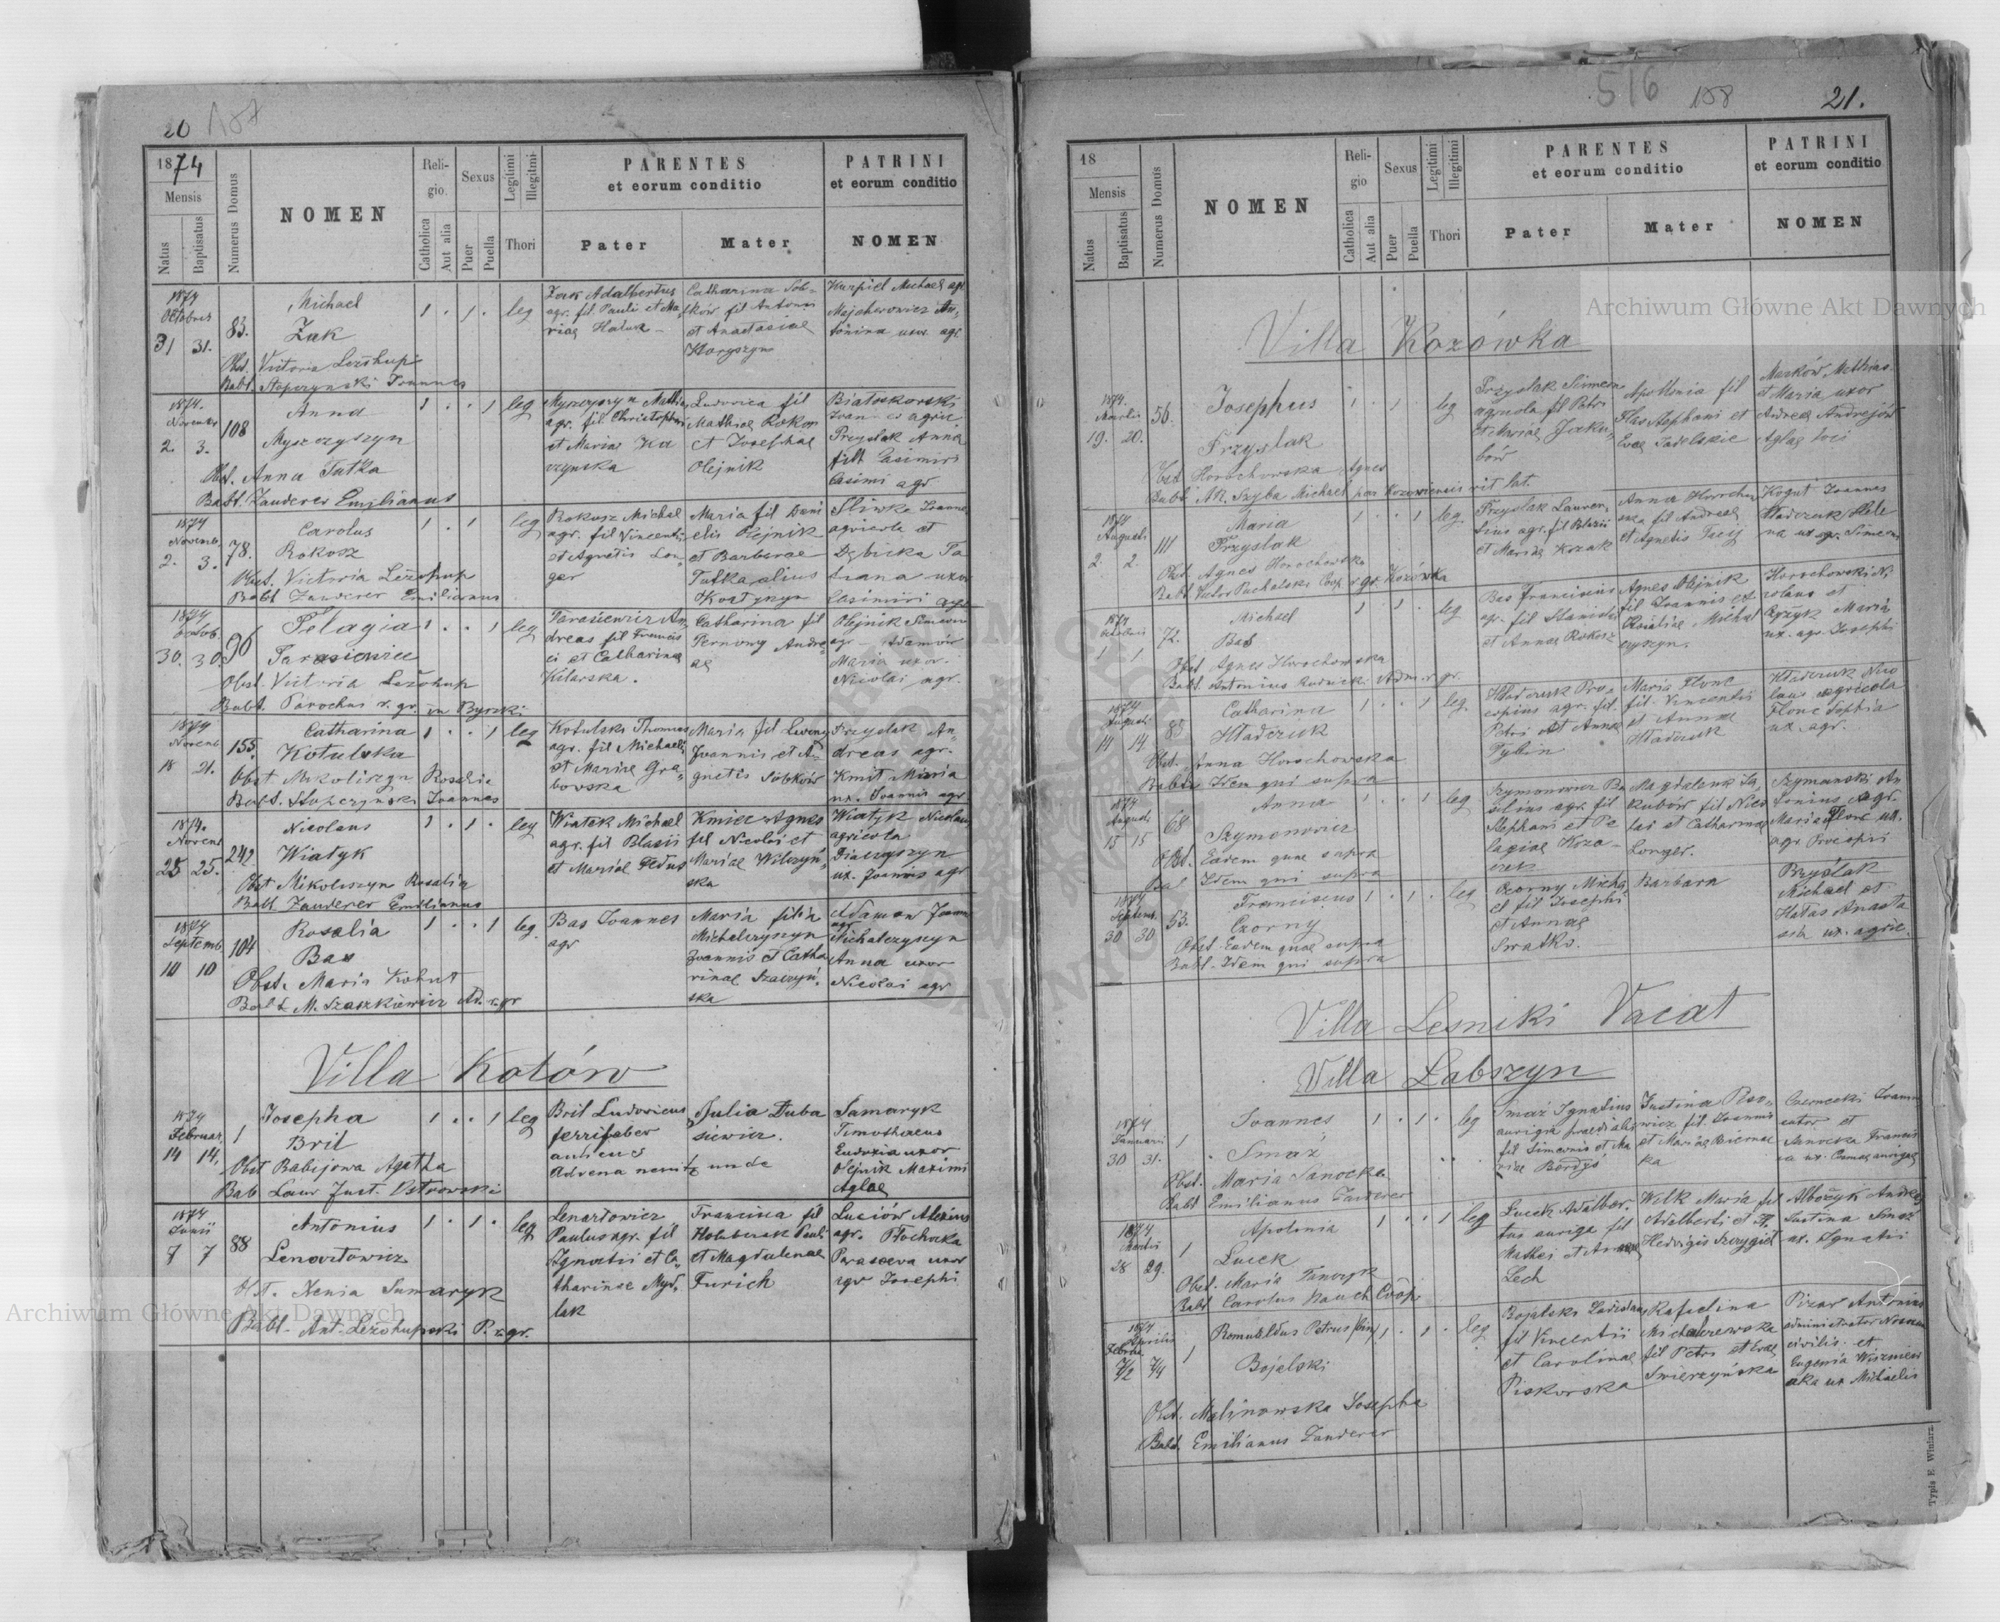 20 187
1874
Mensis
Natus
Baptisatus
Numerus Domus
NOMEN
Religio
Catholica
Aut alia
Sexus
Puer
Puella
Legitimi
Illegitimi
Thori
PARENTES
et eorum conditio
Pater
Mater
PATRINI
et eorum conditio
NOMEN
1874
Octobris
31 31.
83.
Michael
Żuk
Obst. Victoria Leżohup
Babt. Stopczynski Joannes
1 . 1 .
leg
Żuk Adalbertus
agr. fil. Pauli et Ma-
riae
Catharina Sob-
ków fil Antonii
et Anastasiae
Horyszyn
Kurpiel Michael agr
Majcherowicz An-
tonina uxor agr.
1874.
Novemb
2. 3.
108
Anna
Myszczyszyn
Obst. Anna Tutka
Babt. Zauderer Emilianus
1 . . 1
leg
Myszczyszyn Mathias
agr. fil Christophori
et Mariae
Ludovica fil
Mathiae Rokosz
et Josephae
Olejnik
Białoskorski
Joannes agric
Przyslak Anna
Casimi agr
1874
Novemb.
2. 3.
78.
Carolus
Rokosz
Obst. Victoria Leżohup
Babt Zauderer Emilianus
1 . 1
leg
Rokosz Michael
agr. fil Vincentii
et Agnetis Lon-
ger
Maria fil Dani
elis Olejnik
et Barbarae
Tutka alius
Kostyszyn
Sliwka Joannes
agricola et
Dębicka Ta
tiana uxor
Casimiri agr
1874
Octob.
30. 30.
96
Pelagia
Tarasiewicz
Obst. Victoria Leżohup
Babt. Parochus r. gr. in Byszki
1 . . 1
leg
Tarasiewicz An
dreas fil Francis
ci et Catharina
Kilarska.
Catharina fil
Pernowy Andre-
ae
Olejnik Simeon
agr Adamów
Maria uxor.
Nicolai agr.
1874
Novemb
18 21.
155.
Catharina
Kotulska
Obst Mikoliszyn Rosalie
Babt. Stopczynski Joannes
1 . . 1
leg
Kotulski Thomas
agr. fil Michaeli
et Mariae Gra-
bowska
Maria fil
Joannis et A-
gnetis Sobków
Przyslak An
dreas agr.
Kmit Maria
ux. Joannis agr
1874.
Novemb
25 25.
242.
Nicolaus
Wiatyk
Obst Mikoliszyn Rosalia
Babt Zauderer Emilianus
1 . 1 .
leg
Wiatek Michael
agr. fil Blasii
et Mariae Fedus
Kmiec Agnes
fil Nicolai et
Mariae Wilczyń-
ska
Wiatyk Nicolaus
agricola
ux. Joannis agr
1874
Septemb
10 10
104
Rosalia
Bas
Obst. Maria Kohut
Babt. M. Szaszkiewicz Ad. r. gr
1 . . 1
leg.
Bas Joannes
agr
Maria filia
Michalczyszyn
Joannis et Catha
rinae
ska
Adamow Joannes
agr
Michalczyszyn
Anna uxor
Nicolai agr
Villa Kotów
1874
Februar.
14 14.
1
Josepha
Bril
Obst Babijowa Agetha
Bab Laur Just. Ostrowski
1 . . 1
leg
Bril Ludovicus
ferrifaber
Advena nemitz unde
Julia Duba
siewicz.
Samaryk
Timotheus
Eudoxia uxor
Olejnik Maximi
Aglae
1874
Junii
7 7
88
Antonius
Lenartowicz
Obst. Xenia Samaryk
Babt. Ant. Leżohupski P. r. gr.
1 . 1 .
leg
Lenartowicz
Paulus agr. fil
Ignatii et Ca
tharinae Myd-
lak
Francisca fil
Holubczak Pauli
et Magdalenae
Furich
Luciów Alexius
agr. Płochocka
Parasceva uxor
agr Josephi
516 188 21.
18
Mensis
Natus
Baptisatus
Numerus Domus
NOMEN
Religio
Catholica
Aut alia
Sexus
Puer
Puella
Legitimi
Illegitimi
Thori
PARENTES
et eorum conditio
Pater
Mater
PATRINI
et eorum conditio
NOMEN
Villa Kozówka
1874.
Martii
19. 20.
56.
Josephus
Przyslak
Obst Horochowska Agnes
Babt. AR. Szyba Michael par Kozoviensis rit lat.
1 . 1 .
leg
Przyslak Simeon
agricola fil Petri
et Mariae Jaku-
bów
Apollonia fil
Has Stephani et
Evae
Marków Mathias
et Maria uxor
Andreae Andrejów
Aglae loci
1874
Augusti
2. 2.
111
Maria
Przyslak
Obst. Agnes Horochowska
Babt. Victor Puchalski Coop r. gr. Kozówka
1 . . 1
leg.
Przyslak Lauren-
tius agr. fil Blasii
et Mariae Kozak
Anna Horochow
ska fil Andreae
et Agnetis
Kogut Joannes
Hładczuk Hele
na ux agr. Simeonis
1874
Octobris
1 1
72.
Michael
Bas
Obst Agnes Horochowska
Babt. Antonius Rudnicki Adm. r. gr.
1 . 1 .
leg
Bas Franciscus
agr. fil Stanislai
et Annae Rokosz
Agnes Olejnik
fil Joannis et
Michal
czyszyn.
Horochowski Ni
colaus et
Maria
ux. agr. Josephi
1874
Augusti
14 14.
83
Catharina
Hładczuk
Obst. Anna Horochowska
Babt. Idem qui supra
1 . . 1
leg.
Hładczuk Pro-
copius agr. fil.
Petri et Annae
Maria Flonc
fil. Vincentii
et Annae
Hładczuk
Hładczuk Nico
laus agricola
Flonc Sophia
ux. agr.
1874
Augusti
15 15
68
Anna
Szymonowicz
Obst. Eadem quae supra
Bab Idem qui supra
1 . . 1
leg
Szymonowicz Ba
silius agr. fil
Stephani et Pe
lagiae Koza-
czek
Magdalena Ja
kubów fil Nico
lai et Catharinae
Longer.
Szymanski An
tonius agr.
Maria Flonc ux.
agr Procopii
1874
Septem.
30 30
53.
Franciscus
Czorny
Obst. Eadem quae supra
Babt. Idem qui supra
1 . 1 .
leg
Czorny Micha
el fil Josephi
et Annae
Swatko.
Barbara
Przyslak
Michael et
Hałas Anasta
sia ux. agric.
Villa Lesniki Vacat
Villa Łabszyn
1874
Januari
30 31.
1
Joannes
Smaż
Obst. Maria Sanocka
Babt Emilianus Zauderer
1 . 1 .
leg
Smaż Ignatius
auriga praedialis
fil Simeonis et Ma
riae Berdys
Justina
wicz fil. Joannis
et Mariae Biernac
ka
Czernecki Joann
et
Sanocka Francis
ca ux. Cosmae aurigae
1874
Martii
28 29.
1
Apolonia
Lucek
Obst. Maria Fanczyk
Babt Carolus Hauch Coop.
1 . . 1
leg
Lucek Adalber-
tus auriga fil
Mathei et Annae
Lech
Wilk Maria fil
Adalberti et
Hedvigis Szczygieł
Albożyk Andreas
Justina Smaż
ux. Ignatii
1874
Aprilis
Febru.
2/2 7/4
1
Romualdus Petrus (bin)
Bojalski
Obst. Malinowska Josepha
Babt. Emilianus Zauderer
1 . 1 .
leg
Bojalski Ladislaus
fil Vincentii
et Carolinae
Piskorska
Rafaelina
Michalczewska
fil Petri et Evae
Swierzyńska
Pizar Antonius
administrator
civilis et
Eugenia Wiszniew
ska ux Michaelis
Typis E. Winiarz
Archiwum Główne Akt Dawnych
Archiwum Główne Akt Dawnych